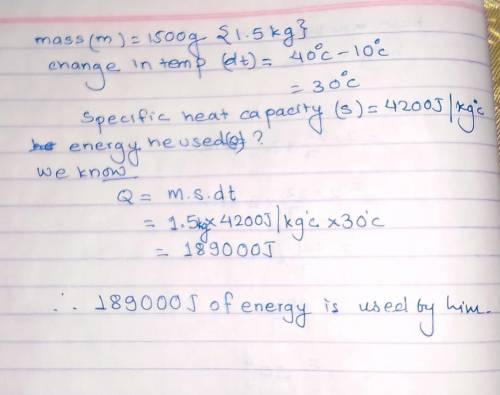 mass(m) = 1500g {1.5 kg}
change in temp (dt) = 40°c - 10°c
= 30°c
Specific heat capacity (s) = 4200J/kg°c
energy he used(Q) ?
we know
Q = m.s.dt
= 1.5kg × 4200J/kg°c × 30°c
= 189000J
∴ 189000J of energy is used by him.